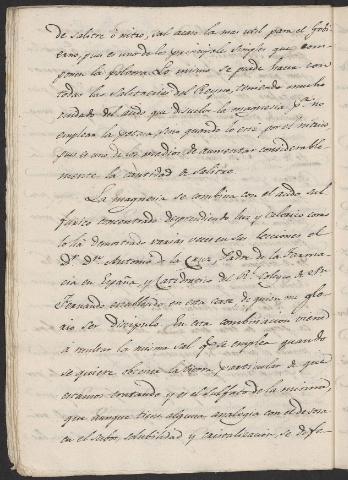 de salitre ó nitro, sal acaso la mas util para el Gobi-
erno, pues es uno de los principales simples que com-
ponen la polvora. Lo mismo se puede hacer con
todas las Salitrerias del Reyno, teniendo mucho
cuidado del acido que disuelve la magnesia pª no
emplear la potasa, sino quando lo esté por el nitrico
pues es uno de los medios de aumentar considerable-
mente la cantidad de salitre.
La magnesia se combina con el acido sul-
furico concentrado desprendiendo luz y calorico como
lo há demostrado varias veces en sus lecciones el
Dr. Dn. Antonio de la Cruz, Padre de la Farma-
cia en España y Catedratico del Rl. Colegio de Sn.
Fernando establecido en esta corte de quien me glo-
rio ser discipulo. En esta combinacion viene
á resultar la misma sal qe. se emplea quando
se quiere obtener la tierra particular de que
estamos tratando y es el sulfato de la misma,
que aunque tiene alguna analogia con el de sosa
en el sabor, solubilidad y cristalizacion, se dife-